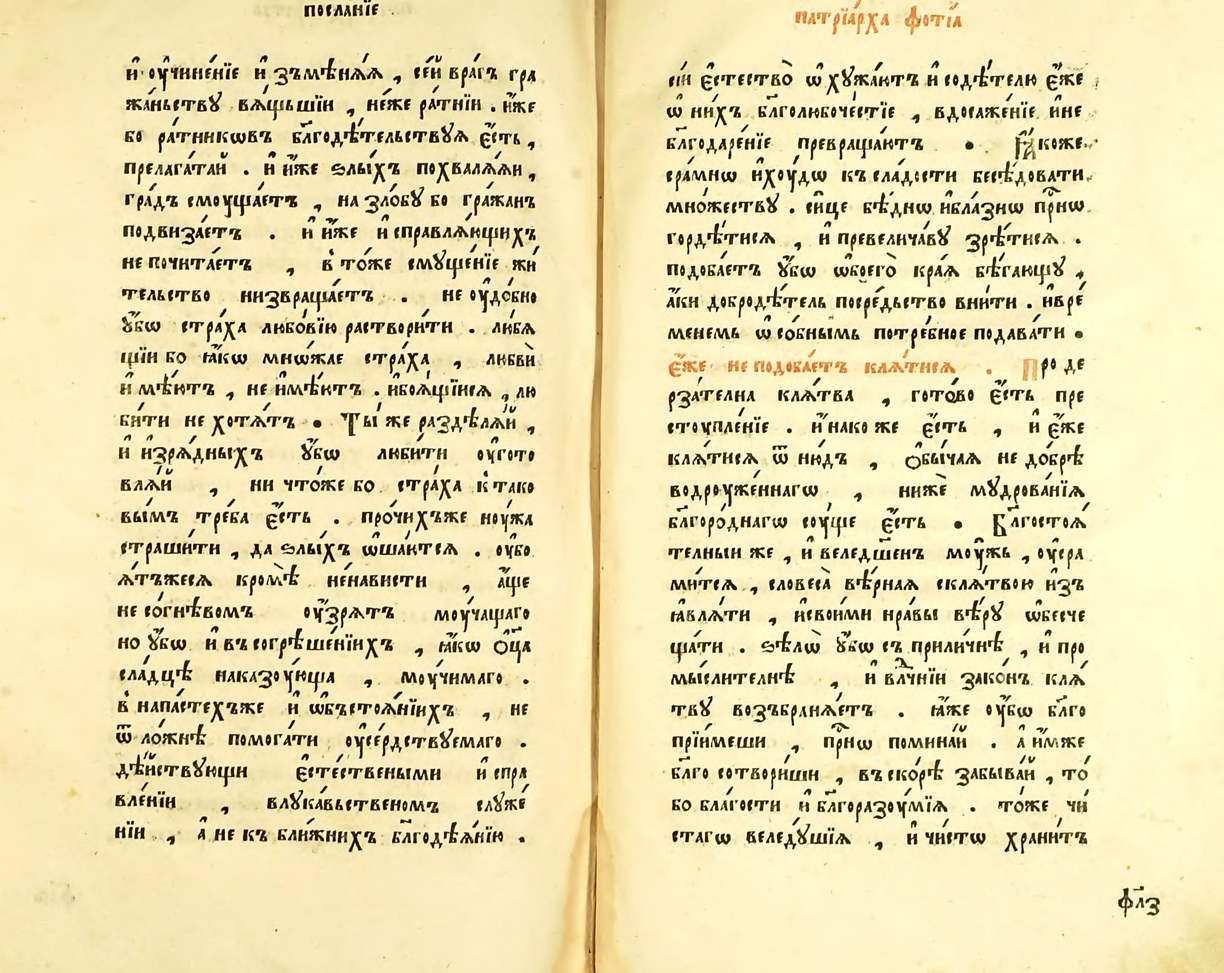 посланїе
и҆ ᲂу҆чине́нїе и҆ зъмѣнѧ́ѧ , се́й враг҄ъ гра
жа́ньствꙋ вѧ́щьшїи , не́же ра́тнїи . и҆́же
бо ра́тникѡвъ бл҃годѣ́тельствꙋѧ є҆́сть ,
прелага́тай . и҆ и҆́же ѕлы́хъ похвалѧ́ѧи ,
гра́дъ смоуща́етъ , на ѕло́бꙋ бо гра́жан
подвиза́етъ . и҆ и҆́же и҆справлѧ́ющихъ
не почита́етъ , в то́же смꙋще́нїе жи́
тельство низвраща́етъ . не ᲂу҆до́бно
ꙋ҆́бѡ стра́ха любо́вїю раствори́ти . любѧ́
щїи бо ꙗ҆́кѡ мнѡ́жае стра́ха , любвѝ
и҆мѣ́ютъ , не и҆мѣ́ютъ . и҆боѧ́щїисѧ , лю
би́ти не хотѧ́тъ . Ты́ же раздѣлѧ́ѧй ,
и҆ и҆зрѧ́дныхъ ꙋ҆́бѡ люби́ти ᲂу҆гото
влѧ́й , ни что́же бо стра́ха к тако
вы́мъ тре́ба є҆́сть . про́чихъже ноу́жа
страши́ти , да ѕлы́хъ ѿша́ютсѧ . ᲂу҆бо
ѧ́тъжесѧ кромѣ̀ не́нависти , а҆́ще
не со́гнѣвомъ ᲂу҆́зрѧтъ моу́чащаго
но ꙋ҆́бѡ и҆ въ согрѣше́нїихъ , ꙗ҆́кѡ ѻ҆ц҃а
сла́дцѣ наказоу́юща , моу́чимаго .
в напа́стехъже и҆ ѡ҆бъстоѧ́нїихъ , не
ѿло́жнѣ помога́ти ᲂу҆се́рдствꙋемаго .
дѣ́йствꙋющи є҆сте́ствеными и҆спра
вле́нїи , влꙋка́вьственомъ слꙋже́
нїи , а҆ не къ бли́жнихъ бл҃годѣѧ́нїю .
патрїа́рха фо́тїа
сїи є҆стество̀ ѡ҆хꙋжа́ютъ и҆ содѣ́телю є҆́же
ѡ҆ ни́хъ бл҃голюбоче́стїе , вдосаже́нїе и҆не
бл҃годаре́нїе превраща́ютъ . Ꙗ҆́коже
сра́мнѡ и҆хоу́дѡ къ сла́дости бесѣ́довати
мно́жествꙋ . си́це бѣ́днѡ и҆бла́знѡ при҇нѡ
гордѣ́тисѧ , и҆ превелича́вꙋ зрѣ́тисѧ .
подоба́етъ ꙋ҆́бѡ ѡ҆боего̀ кра́ѧ бѣ́гающꙋ ,
а҆́ки добродѣ́тель посре́дьство вни́ти . и҆вре́
менемъ ѡ҆ со́бнымъ потре́бное подава́ти .
є҆́же не подоба́етъ клѧ́тисѧ . Про де
рза́телна клѧ́тва , гото́во є҆́сть пре
стоупле́нїе . и҆́нако же є҆́сть , и҆ є҆́же
клѧ́тисѧ ѿ ню́дъ , ѻ҆бы́чаѧ не до́брѣ
водроуже́ннагѡ , нижѐ мꙋ́дрованїѧ
бл҃горо́днагѡ соу́ще є҆́сть . Благостоѧ́
телныи же , и҆ веледш҃енъ моу́жь , ᲂу҆сра
ми́тсѧ , словеса̀ вѣ́рнаѧ склѧ́твою и҆зъ
ꙗ҆влѧ́ти , и҆свои́ми нра́вы вѣ́рꙋ ѡ҆бесче
ща́ти . ѕѣлѡ̀ ꙋ҆́бѡ съ прили́чнѣ , и҆ про
мы́слителнѣ , и҆ влⷣчнїи зако́нъ клѧ́
твꙋ возъбранѧ́етъ . ꙗ҆́же ᲂу҆́бѡ бл҃го
прїи́меши , при҇нѡ помина́й . а҆ и҆́мже
бл҃го сотвори́ши , въ ско́рѣ забыва́й , то́
бо бла́гости и҆ бл҃горазоу́мїѧ . то́же чи́
стагѡ веледꙋ́шїѧ , и҆ чи́стѡ храни́тъ
фл҃з